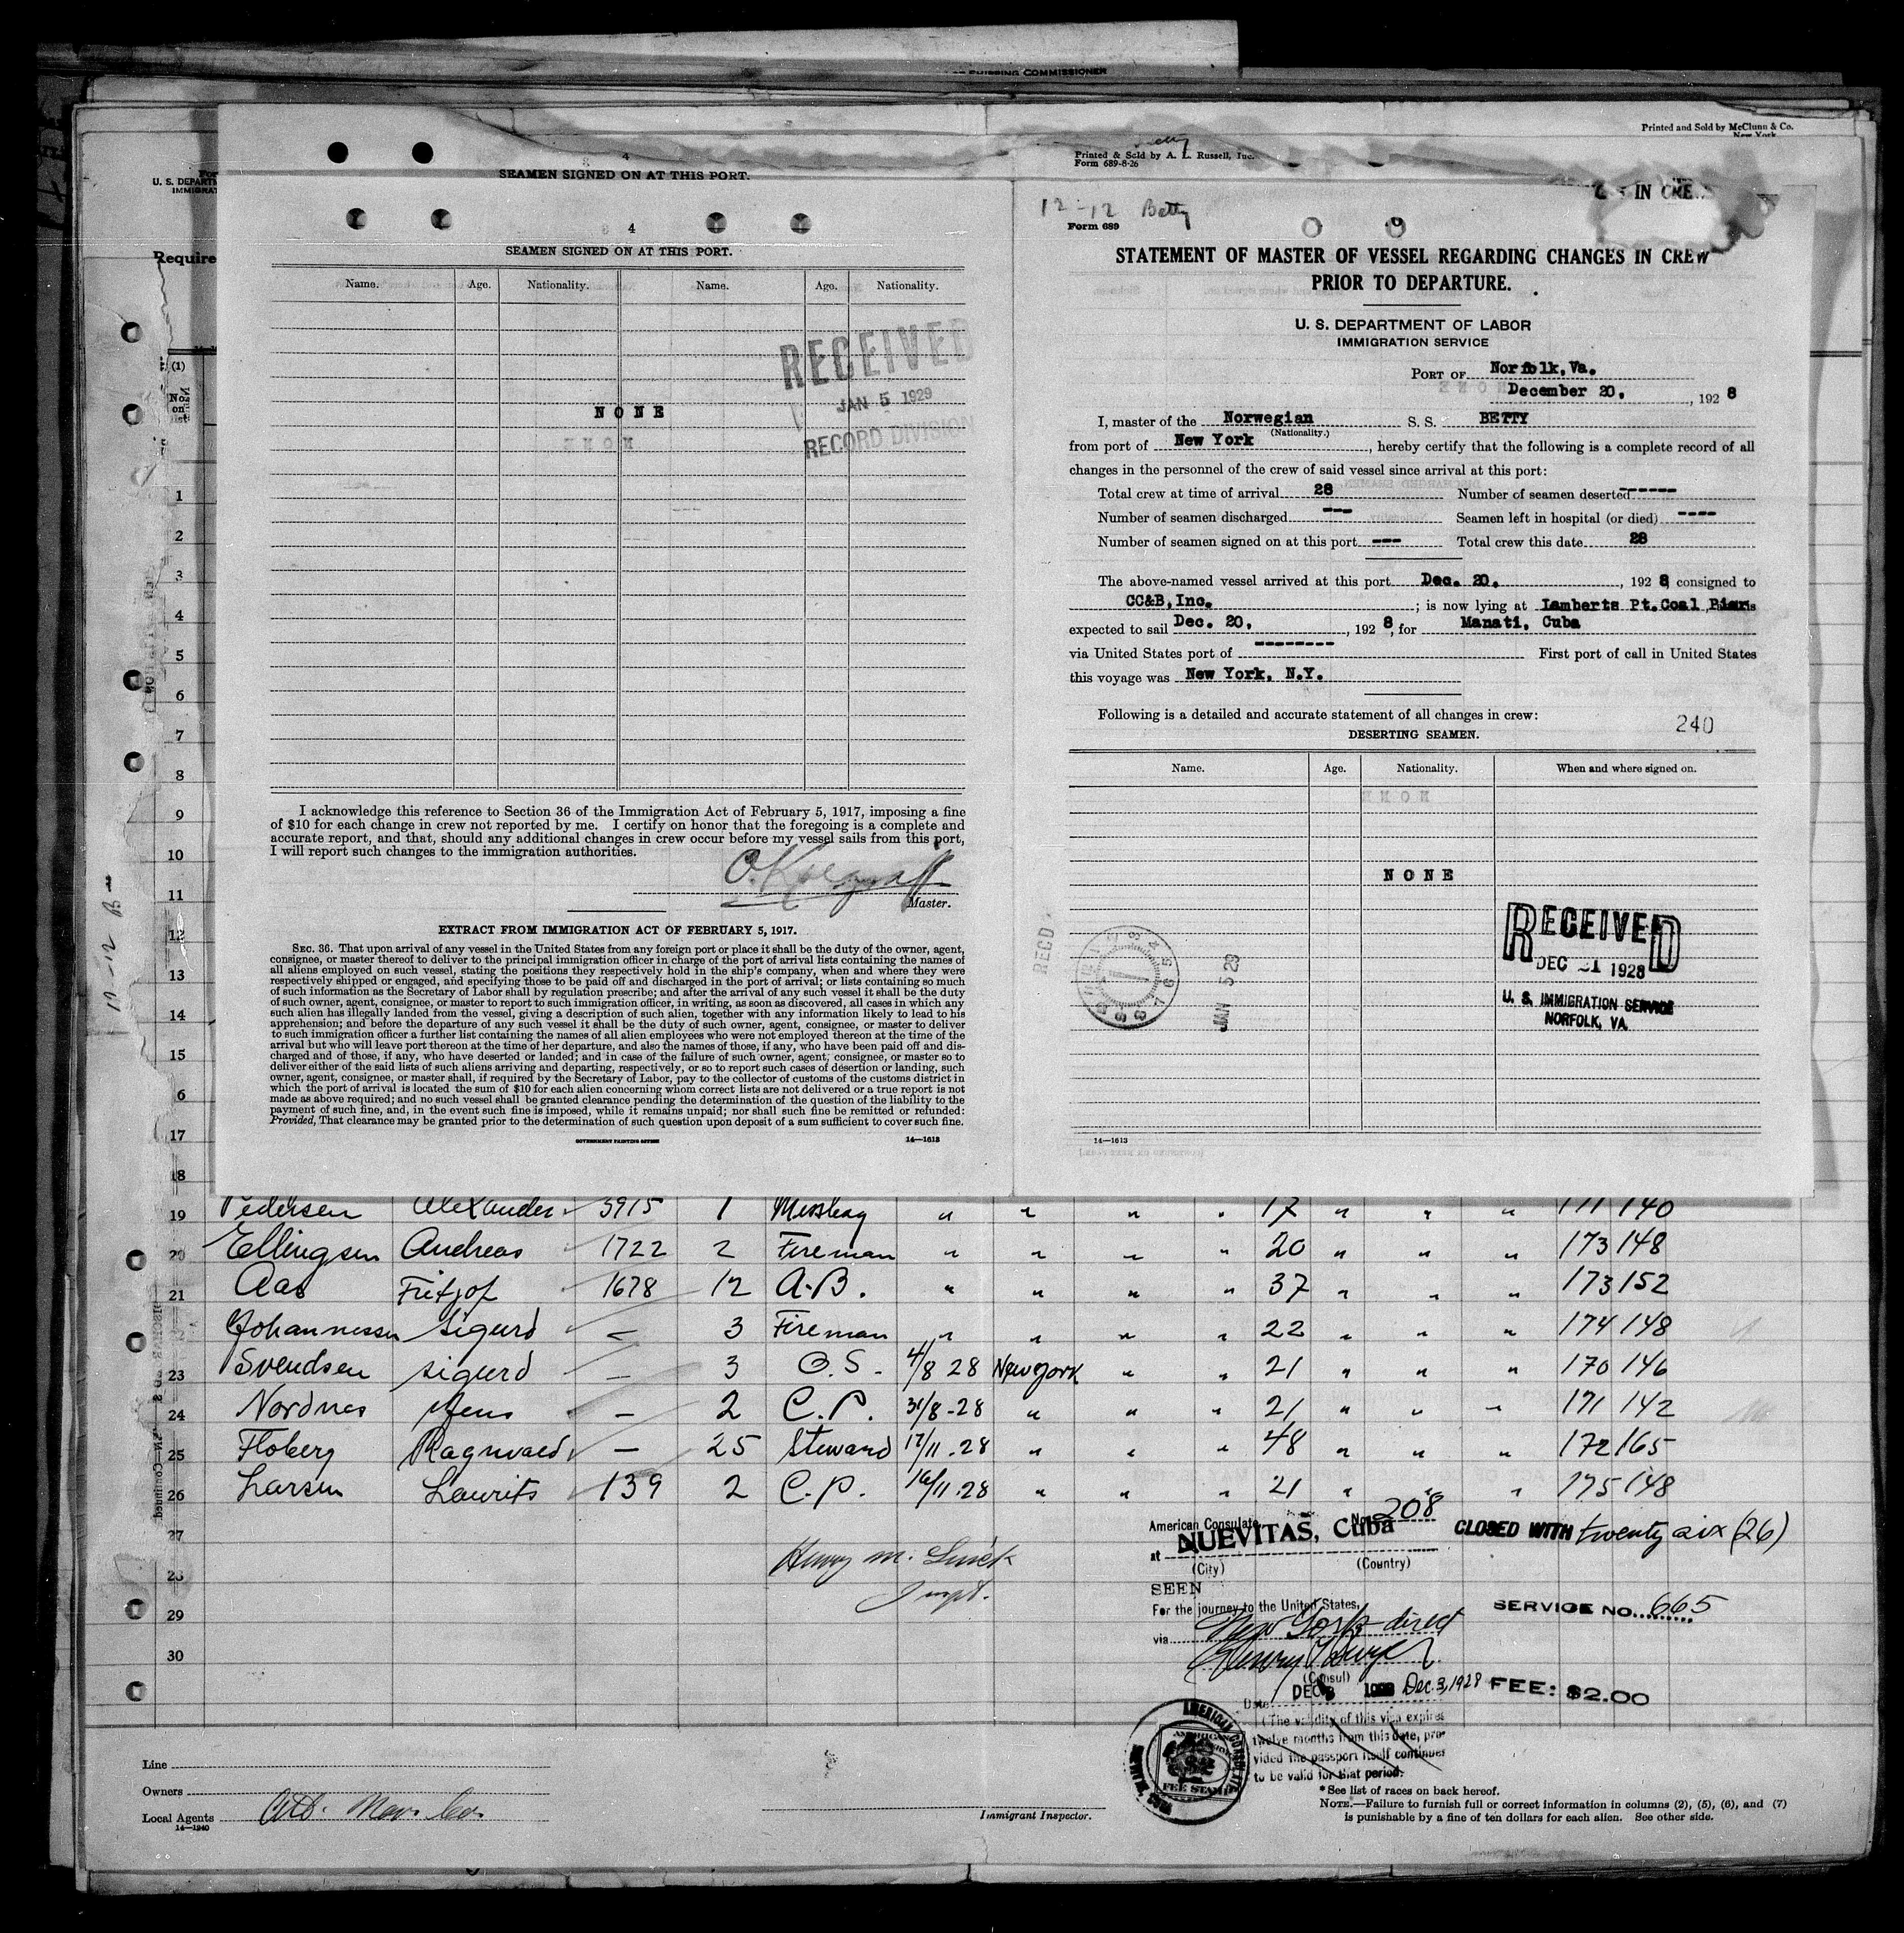 SHIPPING COMMISSIONER
Printed and Sold by McClunn & Co.
New York
Betty
Printed & Sold by A. L. Russell, Inc.
Form 689-8-26
4
SEAMEN SIGNED ON AT THIS PORT.
U. S. DEPARTM
IMMIGRAT
IN CRE
Require
4
SEAMEN SIGNED ON AT THIS PORT.
Name. Age. Nationality. Name. Age. Nationality.
RECEIVED
JAN 5 1929
RECORD DIVISION
NONE
I acknowledge this reference to Section 36 of the Immigration Act of February 5, 1917, imposing a fine
of $10 for each change in crew not reported by me. I certify on honor that the foregoing is a complete and
accurate report, and that, should any additional changes in crew occur before my vessel sails from this port,
I will report such changes to the immigration authorities.
Master.
EXTRACT FROM IMMIGRATION ACT OF FEBRUARY 5, 1917.
SEC. 36. That upon arrival of any vessel in the United States from any foreign port or place it shall be the duty of the owner, agent,
consignee, or master thereof to deliver to the principal immigration officer in charge of the port of arrival lists containing the names of
all aliens employed on such vessel, stating the positions they respectively hold in the ship's company, when and where they were
respectively shipped or engaged, and specifying those to be paid off and discharged in the port of arrival; or lists containing so much
of such information as the Secretary of Labor shall by regulation prescribe; and after the arrival of any such vessel it shall be the duty
of such owner, agent, consignee, or master to report to such immigration officer, in writing, as soon as discovered, all cases in which any
such alien has illegally landed from the vessel, giving a description of such alien, together with any information likely to lead to his
apprehension; and before the departure of any such vessel it shall be the duty of such owner, agent, consignee, or master to deliver
to such immigration officer a further list containing the names of all alien employees who were not employed thereon at the time of the
arrival but who will leave port thereon at the time of her departure, and also the names of those, if any, who have been paid off and dis-
charged and of those, if any, who have deserted or landed; and in case of the failure of such owner, agent, consignee, or master so to
deliver either of the said lists of such aliens arriving and departing, respectively, or so to report such cases of desertion or landing, such
owner, agent, consignee, or master shall, if required by the Secretary of Labor, pay to the collector of customs of the customs district in
which the port of arrival is located the sum of $10 for each alien concerning whom correct lists are not delivered or a true report is not
made as above required; and no such vessel shall be granted clearance pending the determination of the question of the liability to the
payment of such fine, and, in the event such fine is imposed, while it remains unpaid; nor shall such fine be remitted or refunded:
Provided, That clearance may be granted prior to the determination of such question upon deposit of a sum sufficient to cover such fine.
GOVERNMENT PRINTING OFFICE 14—1613
12-12 Betty
Form 689
STATEMENT OF MASTER OF VESSEL REGARDING CHANGES IN CREW
PRIOR TO DEPARTURE.
U. S. DEPARTMENT OF LABOR
IMMIGRATION SERVICE
PORT OF Norfolk, Va.
December 20, , 1928
I, master of the Norwegian S. S. BETTY
(Nationality.)
from port of New York , hereby certify that the following is a complete record of all
changes in the personnel of the crew of said vessel since arrival at this port:
Total crew at time of arrival 28 Number of seamen deserted -----
Number of seamen discharged --- Seamen left in hospital (or died) ----
Number of seamen signed on at this port --- Total crew this date 28
The above-named vessel arrived at this port Dec. 20. , 1928 consigned to
CC&B, Inc. ; is now lying at Lamberts Pt. Coal Piers
expected to sail Dec. 20, , 1928, for Manati, Cuba
via United States port of -------- First port of call in United States
this voyage was New York, N.Y.
Following is a detailed and accurate statement of all changes in crew:
240
DESERTING SEAMEN.
Name. Age. Nationality. When and where signed on.
NONE
RECEIVED
DEC 21 1928
U. S. IMMIGRATION SERVICE
NORFOLK, VA.
RECD. JAN 5 29
14—1613
(1)
No. on list
1
2
3
4
5
6
7
8
9
10
11
12
13
14
15
6
17
18
19 Pedersen Alexander 3915 1 Messboy " " " " 17 " " " 171 140
20 Ellingsen Andreas 1722 2 Fireman " " " " 20 " " " 173 148
21 Aas Fritjof 1678 12 A.B. " " " " 37 " " " 173 152
22 Johannessen Sigurd — 3 Fireman " " " " 22 " " " 174 148
23 Svendsen Sigurd — 3 O.S. 4/8 28 New York " " 21 " " " 170 146
24 Nordnes Jens — 2 C.P. 31/8-28 " " " 21 " " " 171 142
25 Floberg Ragnvald — 25 Steward 17/11.28 " " " 48 " " " 172 165
26 Larsen Laurits 139 2 C.P. 16/11.28 " " " 21 " " " 175 148
27
28
29
30
Henry M.
Inspt.
American Consulate No. 208
at NUEVITAS, Cuba
(City) (Country)
CLOSED WITH twenty six (26)
SEEN
For the journey to the United States,
via New York direct
SERVICE NO. 665
(Consul)
Date DEC 3 1928 Dec. 3, 1928
FEE: $2.00
(The validity of this visa expires
twelve months from this date, pro-
vided the passport itself continues
to be valid for that period.
AMERICAN CONSULATE
FEE STAMP
Line
Owners
Local Agents
14—1940
Immigrant Inspector.
*See list of races on back hereof.
NOTE.—Failure to furnish full or correct information in columns (2), (5), (6), and (7)
is punishable by a fine of ten dollars for each alien. See other side.